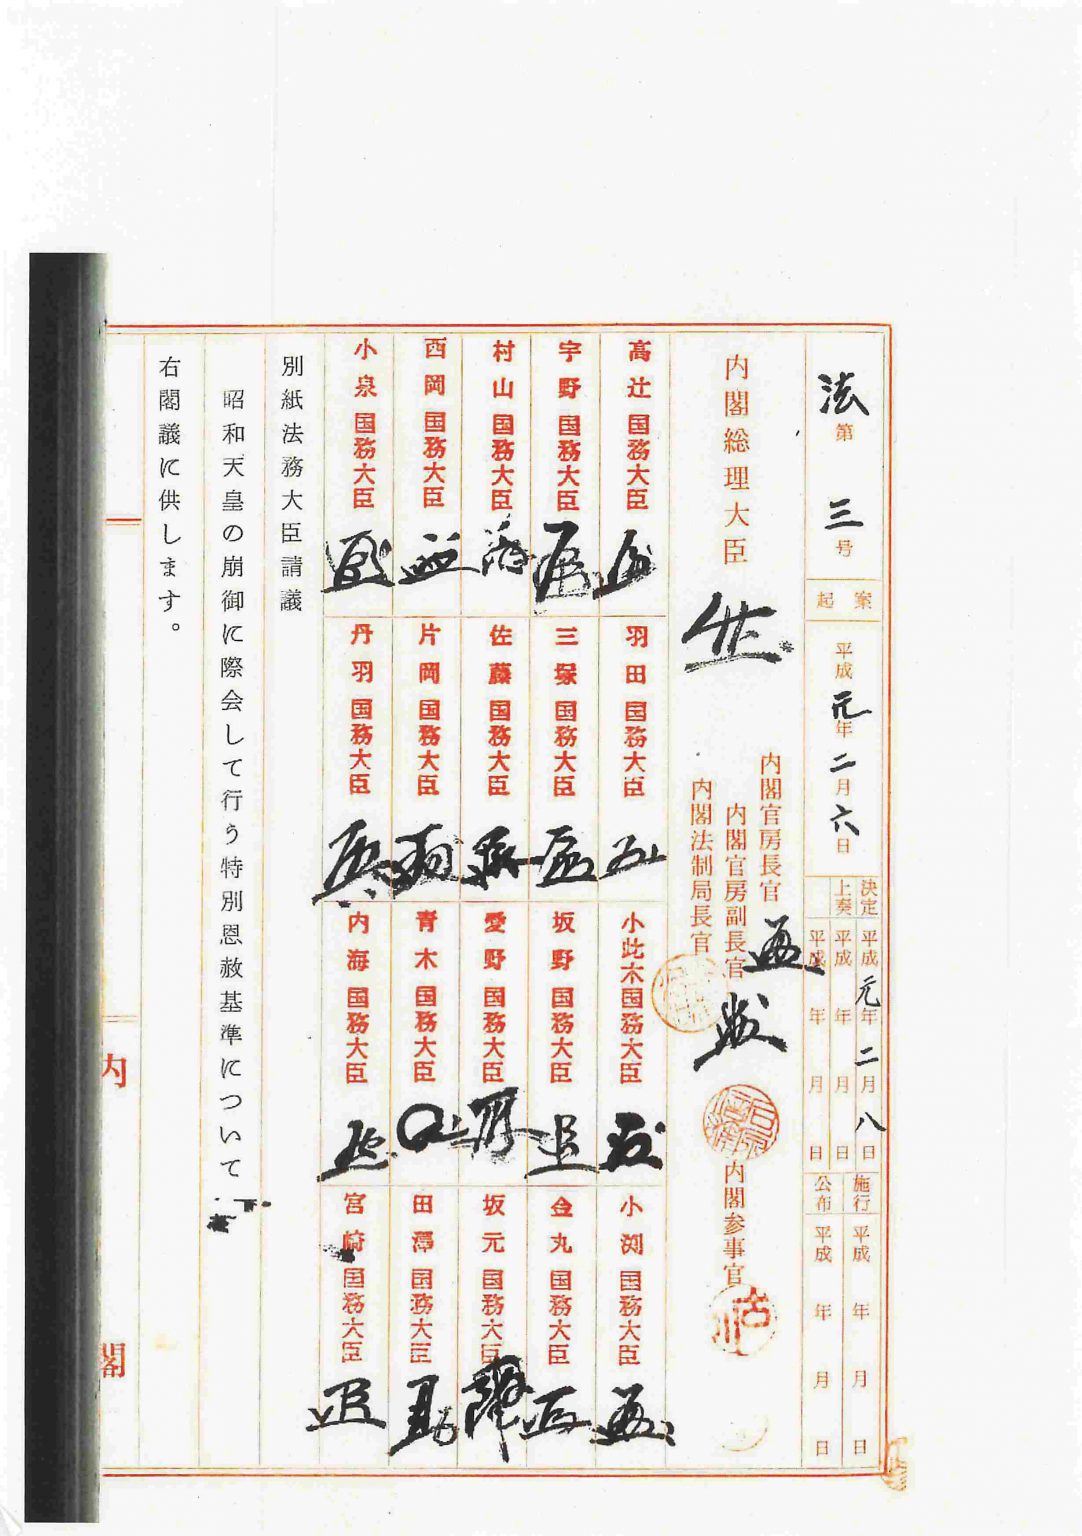 法第三号
起案
平成元年二月六日
決定 平成元年二月八日
上奏 平成 年 月 日
平成 年 月 日
施行 平成 年 月 日
公布 平成 年 月 日
内閣総理大臣
内閣官房長官
内閣官房副長官
内閣法制局長官
内閣参事官
古川
高辻国務大臣
宇野国務大臣
村山国務大臣
西岡国務大臣
小泉国務大臣
羽田国務大臣
三塚国務大臣
佐藤国務大臣
片岡国務大臣
丹羽国務大臣
小此木国務大臣
坂野国務大臣
愛野国務大臣
青木国務大臣
内海国務大臣
小渕国務大臣
金丸国務大臣
坂元国務大臣
田澤国務大臣
宮崎国務大臣
別紙法務大臣請議
昭和天皇の崩御に際会して行う特別恩赦基準について
右閣議に供します。
内閣